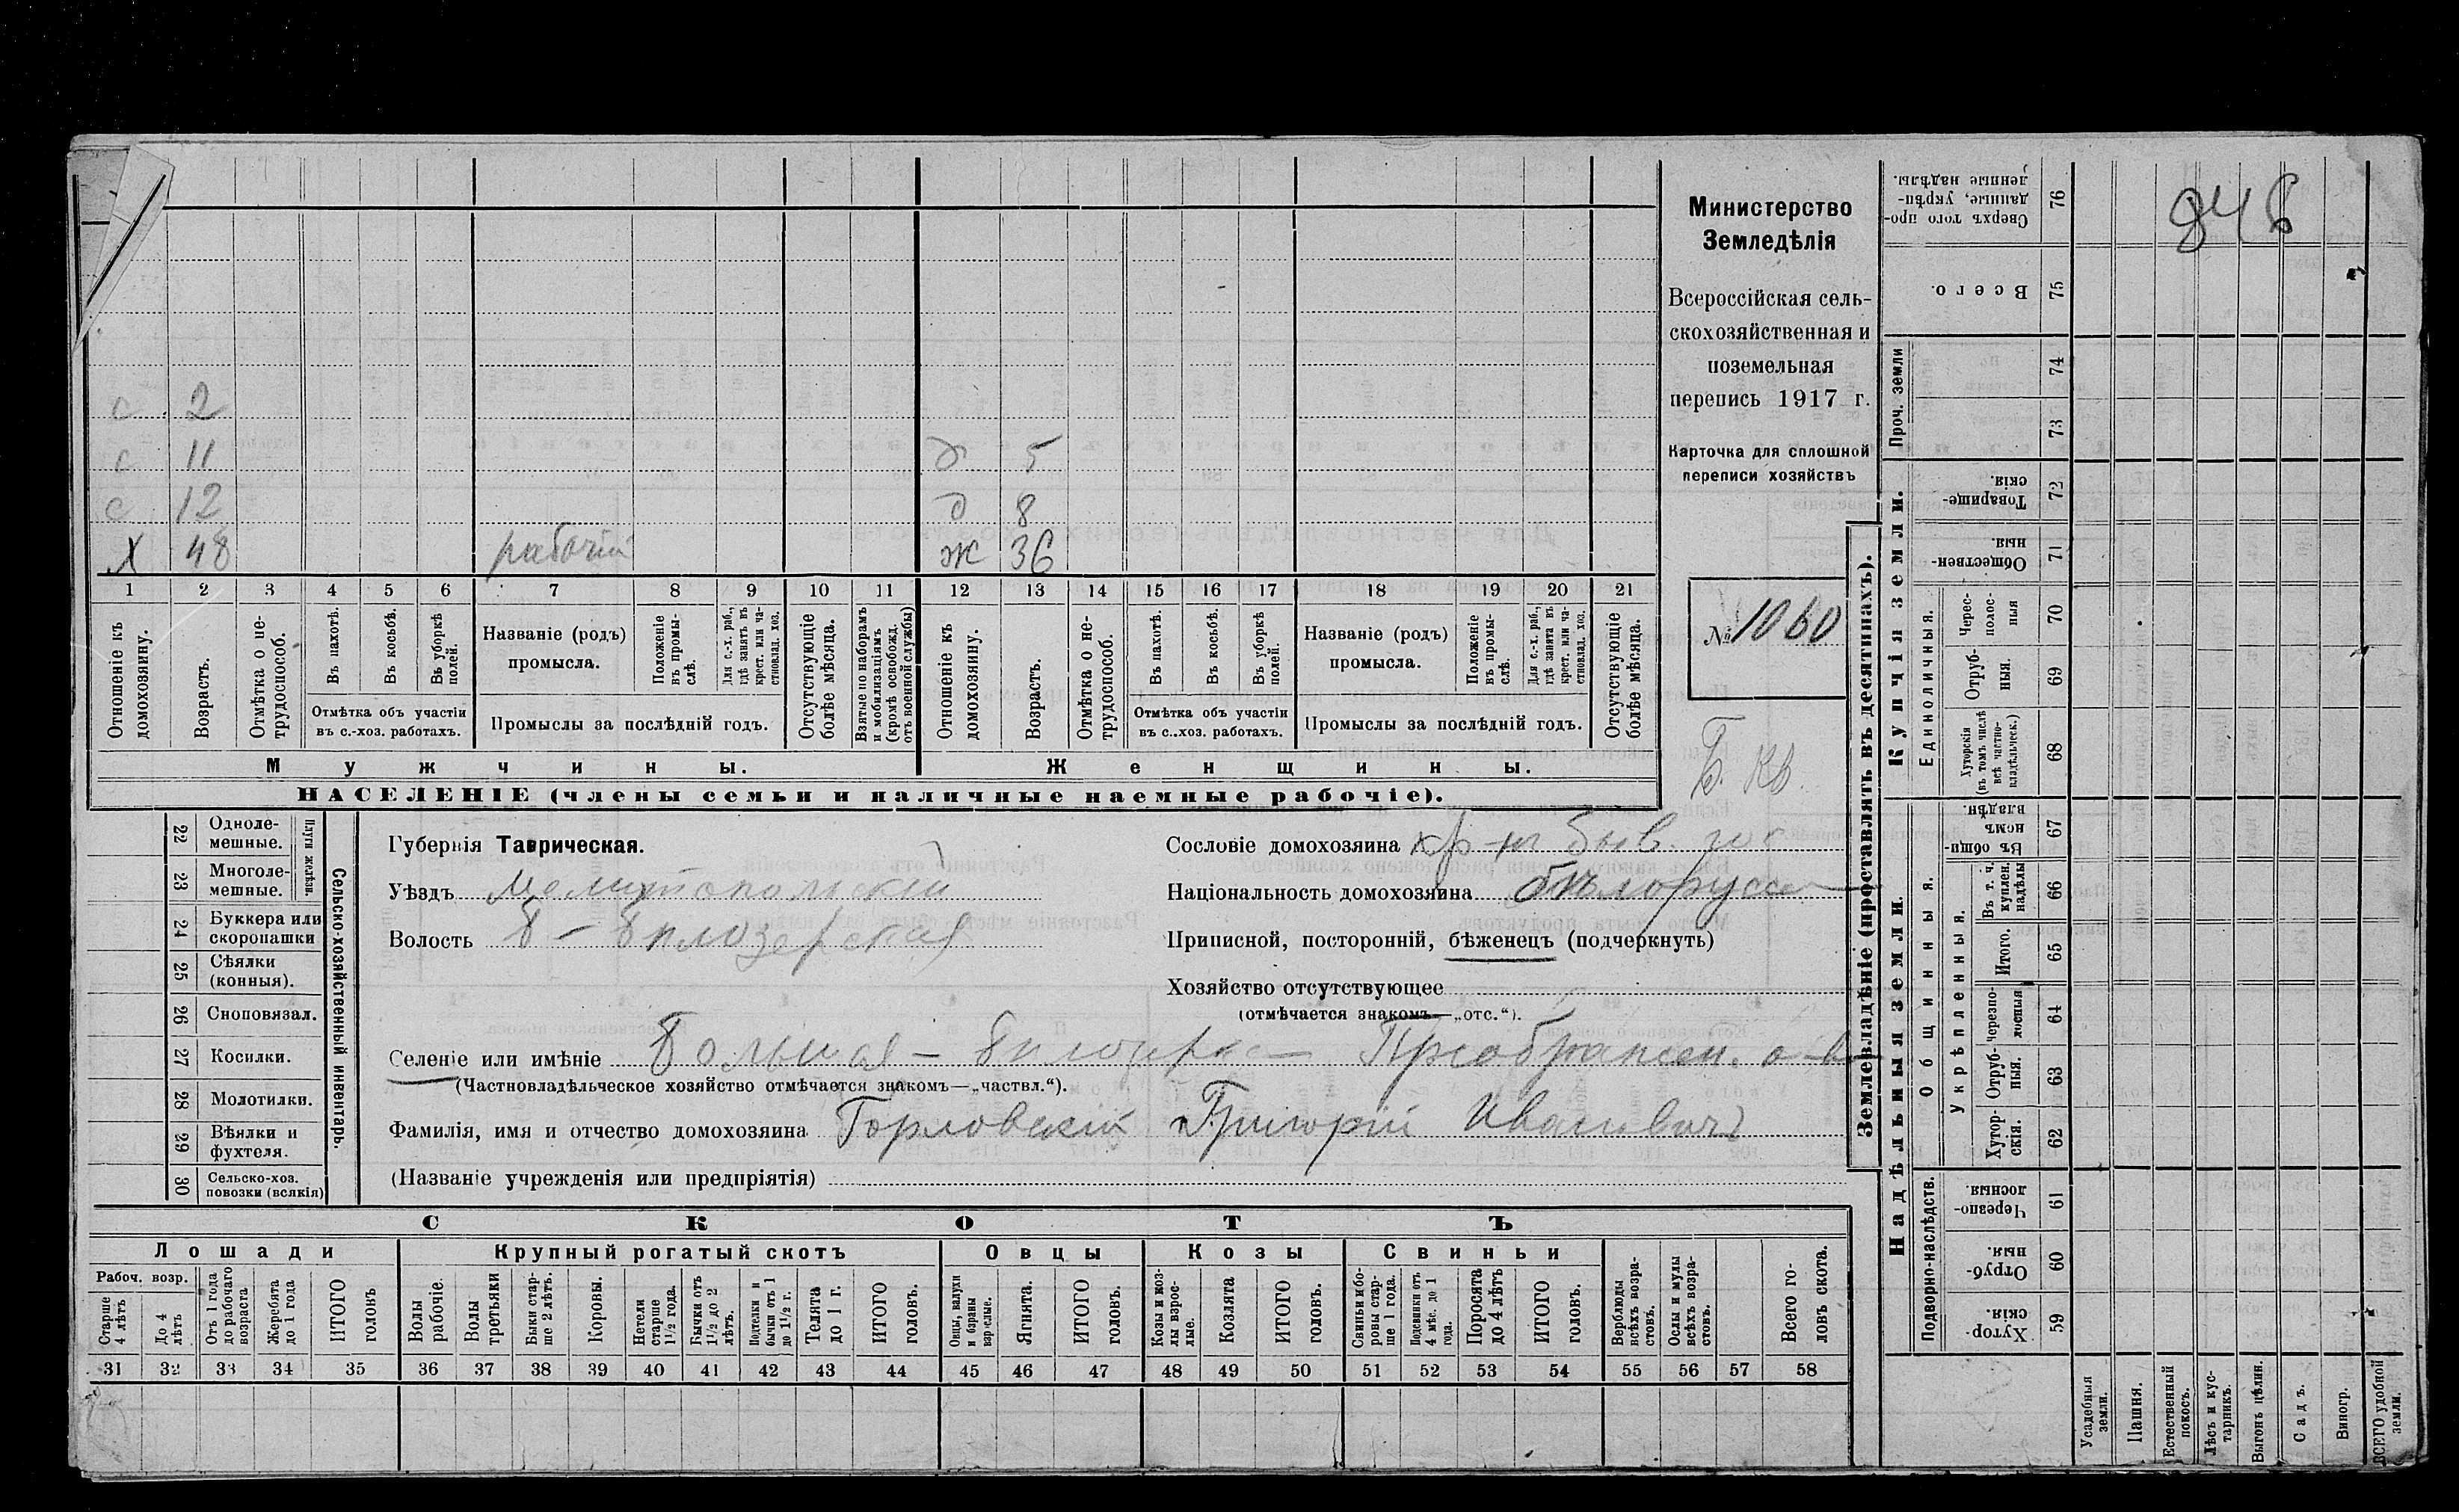 848
Министерство
Земледѣлія
Всероссійская сель-
скохозяйственная и
поземельная
перепись 1917 г.
Карточка для сплошной
переписи хозяйствъ
№ 1060
Б. кв.
с 2
с 11 д 5
с 12 д 8
х 48 рабочій ж 36
1 2 3 4 5 6 7 8 9 10 11 12 13 14 15 16 17 18 19 20 21
Отношеніе къ домохозяину.
Возрастъ.
Отмѣтка о не-трудоспособ.
Въ пахотѣ.
Въ косьбѣ.
Въ уборкѣ полей.
Отмѣтка объ участіи
въ с.-хоз. работахъ.
Названіе (родъ)
промысла.
Положеніе въ промы-слѣ.
Для с.-х. раб., гдѣ занятъ въ крест. или ча-стновлад. хоз.
Промыслы за послѣдній годъ.
Отсутствующіе болѣе мѣсяца.
Взятые по наборамъ и мобилизаціямъ (кромѣ освобожд. отъ военной службы)
Отношеніе къ домохозяину.
Возрастъ.
Отмѣтка о не-трудоспособ.
Въ пахотѣ.
Въ косьбѣ.
Въ уборкѣ полей.
Отмѣтка объ участіи
въ с..хоз. работахъ.
Названіе (родъ)
промысла.
Положеніе въ промы-слѣ.
Для с.-х. раб., гдѣ занята въ крест. или ча-стновлад. хоз.
Промыслы за послѣдній годъ.
Отсутствующіе болѣе мѣсяца.
Мужчины. Женщины.
НАСЕЛЕНІЕ (члены семьи и наличные наемные рабочіе).
22 Одноле-мешные.
23 Многоле-мешные.
Плуги желѣзн.
24 Буккера или скоропашки
25 Сѣялки (конныя).
26 Сноповязал.
27 Косилки.
28 Молотилки.
29 Вѣялки и фухтеля.
30 Сельско-хоз. повозки (всякія)
Сельско-хозяйственный инвентарь.
Губернія Таврическая.
Уѣздъ Мелитопольскій
Волость Б-Бѣлозерская
Сословіе домохозяина кр-нъ быв. гос
Національность домохозяина бѣлоруссъ
Приписной, посторонній, бѣженецъ (подчеркнуть)
Хозяйство отсутствующее
(отмѣчается знакомъ—„отс.“).
Селеніе или имѣніе Большая-Бѣлозерка Преображен. о-во
(Частновладѣльческое хозяйство отмѣчается знакомъ—„частвл.“).
Фамилія, имя и отчество домохозяина Горловскій Григорій Ивановичъ
(Названіе учрежденія или предпріятія)
СКОТЪ
Лошади Крупный рогатый скотъ Овцы Козы Свиньи
Рабоч. возр.
Старше 4 лѣтъ
До 4 лѣтъ
Отъ 1 года до рабочаго возраста
Жеребята до 1 года
ИТОГО головъ
Волы рабочіе.
Волы третьяки
Быки стар-ше 2 лѣтъ.
Коровы.
Нетели старше 1½ года.
Бычки отъ 1½ до 2 лѣтъ.
Подтелки и бычки отъ 1 до 1½ г.
Телята до 1 г.
ИТОГО головъ.
Овцы, валухи и бараны взрослые.
Ягнята.
ИТОГО головъ.
Козы и коз-лы взрос-лые.
Козлята
ИТОГО головъ.
Свиньи и бо-ровы стар-ше 1 года.
Подсвинки отъ 4 мѣс. до 1 года.
Поросята до 4 лѣтъ
ИТОГО головъ.
Верблюды всѣхъ возра-стовъ.
Ослы и мулы всѣхъ возра-стовъ.
Всего го-ловъ скота.
31 32 33 34 35 36 37 38 39 40 41 42 43 44 45 46 47 48 49 50 51 52 53 54 55 56 57 58
Землевладѣніе (проставлять въ десятинахъ).
Купчія земли.
Надѣльныя земли.
Сверхъ того про-данные, укрѣп-ленные надѣлы. 76
Всего. 75
Проч. земли 74 73
Товарище-скія. 72
Обществен-ныя. 71
Единоличныя.
Черес-полос-ныя 70
Отруб-ныя. 69
Хуторскія (въ томъ числѣ всѣ частно-владѣльческ.) 68
Общинныя.
Въ общи-номъ владѣн. 67
Укрѣпленныя.
Въ т. ч. куплен. надѣлы 66
Итого. 65
Черезпо-лосныя 64
Отруб-ныя. 63
Хутор-скія. 62
Подворно-наслѣдств.
Черезпо-лосныя. 61
Отруб-ныя. 60
Хутор-скія. 59
Усадебныя земли.
Пашня.
Естественный покосъ.
Лѣсъ и кус-тарникъ.
Выгонъ цѣлин.
Садъ.
Виногр.
ВСЕГО удобной земли.